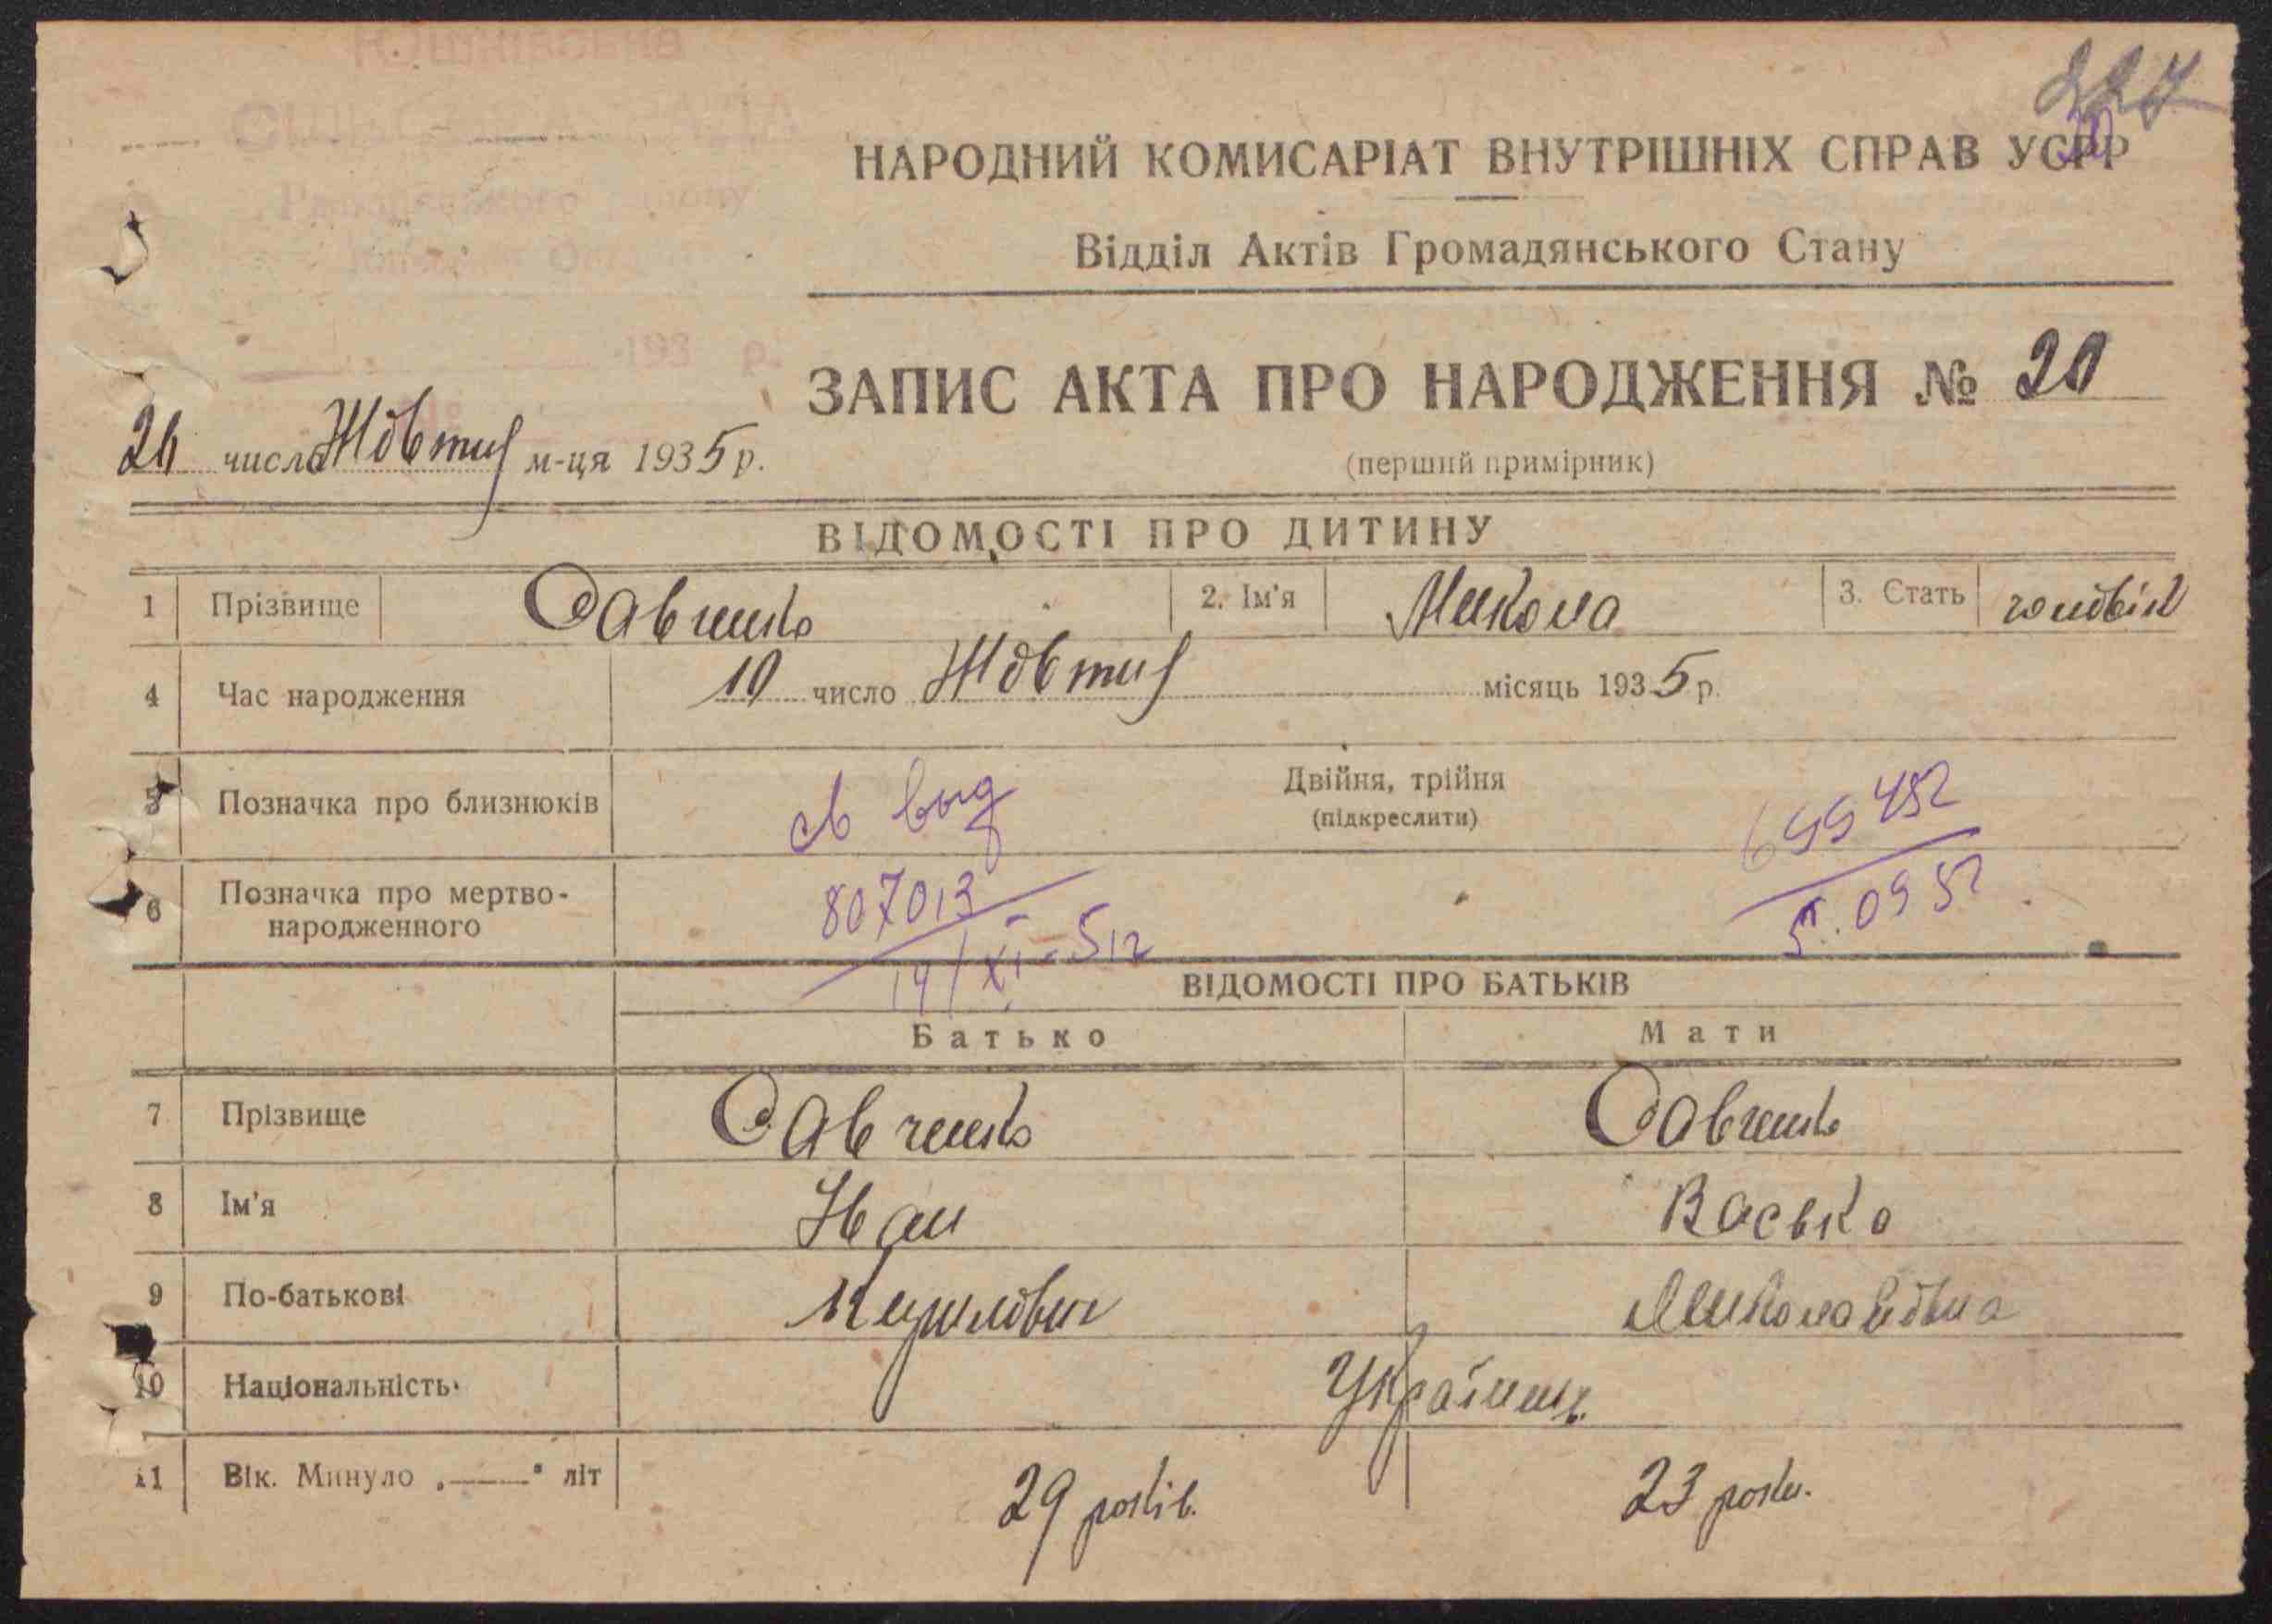 227
20
НАРОДНИЙ КОМИСАРІАТ ВНУТРІШНІХ СПРАВ УСРР
Відділ Актів Громадянського Стану
193 р.
ЗАПИС АКТА ПРО НАРОДЖЕННЯ № 20
26 числа Жовтня м-ця 1935 р.
(перший примірник)
ВІДОМОСТІ ПРО ДИТИНУ
1 Прізвище Савченко 2. Ім'я Микола 3. Стать чоловік
4 Час народження 10 число Жовтня місяць 1935 р.
5 Позначка про близнюків св выд Двійня, трійня
(підкреслити)
699452
6 Позначка про мертво-
народженного
807013
14/XI-51г
ВІДОМОСТІ ПРО БАТЬКІВ
Батько Мати
7 Прізвище Савченко Савченко
8 Ім'я Іван Васька
9 По-батькові Миколаївна
10 Національність Українці
11 Вік. Минуло „——" літ 29 років. 23 роки.